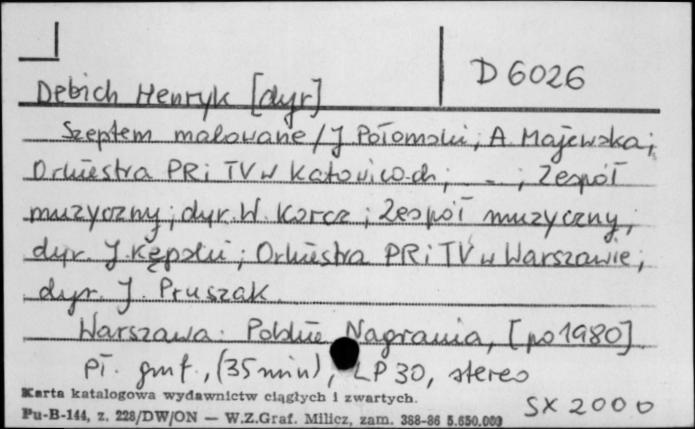 D 6026
Debich Henryk [dyr]
Szeptem malowane / J Połomski; A. Majewska;
Orkiestra PR i TV w Katowicach; - ; Zespół
muzyczny; dyr. W. Korcz; Zespół muzyczny;
dyr. J. Kępski; Orkiestra PR i TV w Warszawie;
dyr. J. Pruszak.
Warszawa: Polskie Nagrania, [po 1980]
Pł. gmf., (35 min), LP 30, stereo
Karta katalogowa wydawnictw ciągłych i zwartych.
SX 2000
Pu-B-144, z. 228/DW/ON — W.Z.Graf. Milicz, zam. 388-86 5.650.000